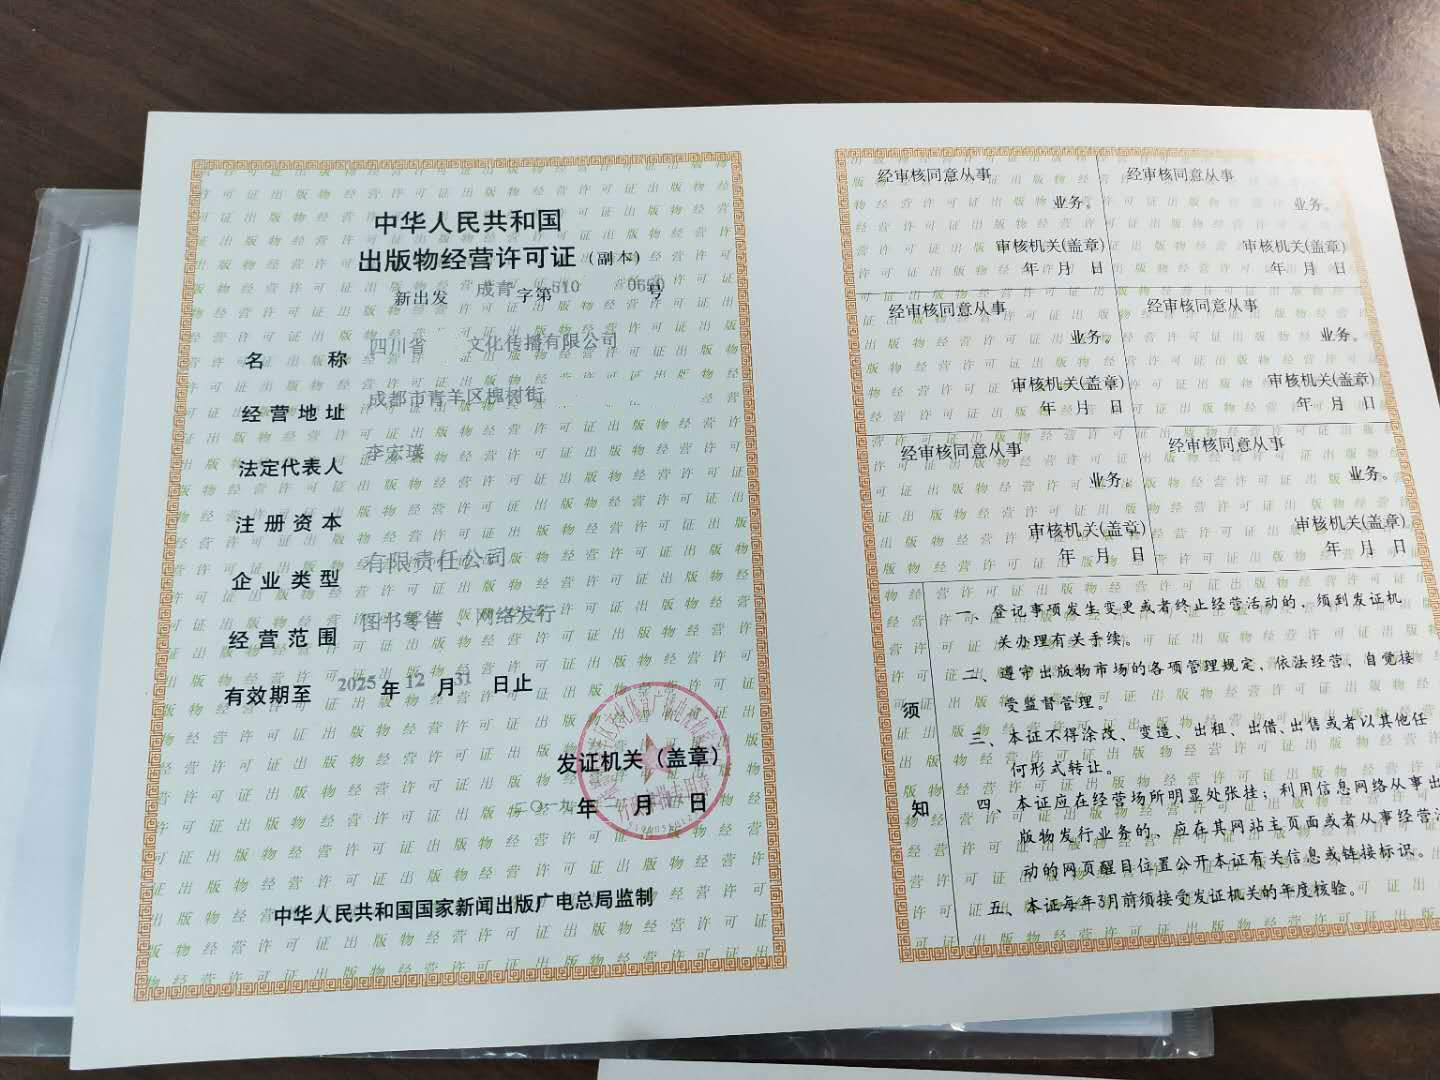 中华人民共和国
出版物经营许可证（副本）
新出发 成青 字第 510 0650 号
名称 四川省 文化传播有限公司
经营地址 成都市青羊区槐树街
法定代表人 李宏瑛
注册资本
企业类型 有限责任公司
经营范围 图书零售、网络发行
有效期至 2025 年 12 月 31 日止
发证机关（盖章）
二〇一九年 月 日
中华人民共和国国家新闻出版广电总局监制
经审核同意从事
业务。
审核机关(盖章)
年 月 日
经审核同意从事
业务。
审核机关(盖章)
年 月 日
经审核同意从事
业务。
审核机关(盖章)
年 月 日
经审核同意从事
业务。
审核机关(盖章)
年 月 日
经审核同意从事
业务。
审核机关(盖章)
年 月 日
经审核同意从事
业务。
审核机关(盖章)
年 月 日
须知
一、登记事项发生变更或者终止经营活动的，须到发证机
关办理有关手续。
二、遵守出版物市场的各项管理规定、依法经营、自觉接
受监督管理。
三、本证不得涂改、变造、出租、出借、出售或者以其他任
何形式转让。
四、本证应在经营场所明显处张挂；利用信息网络从事出
版物发行业务的、应在其网站主页面或者从事经营活
动的网页醒目位置公开本证有关信息或链接标识。
五、本证每年3月前须接受发证机关的年度核验。